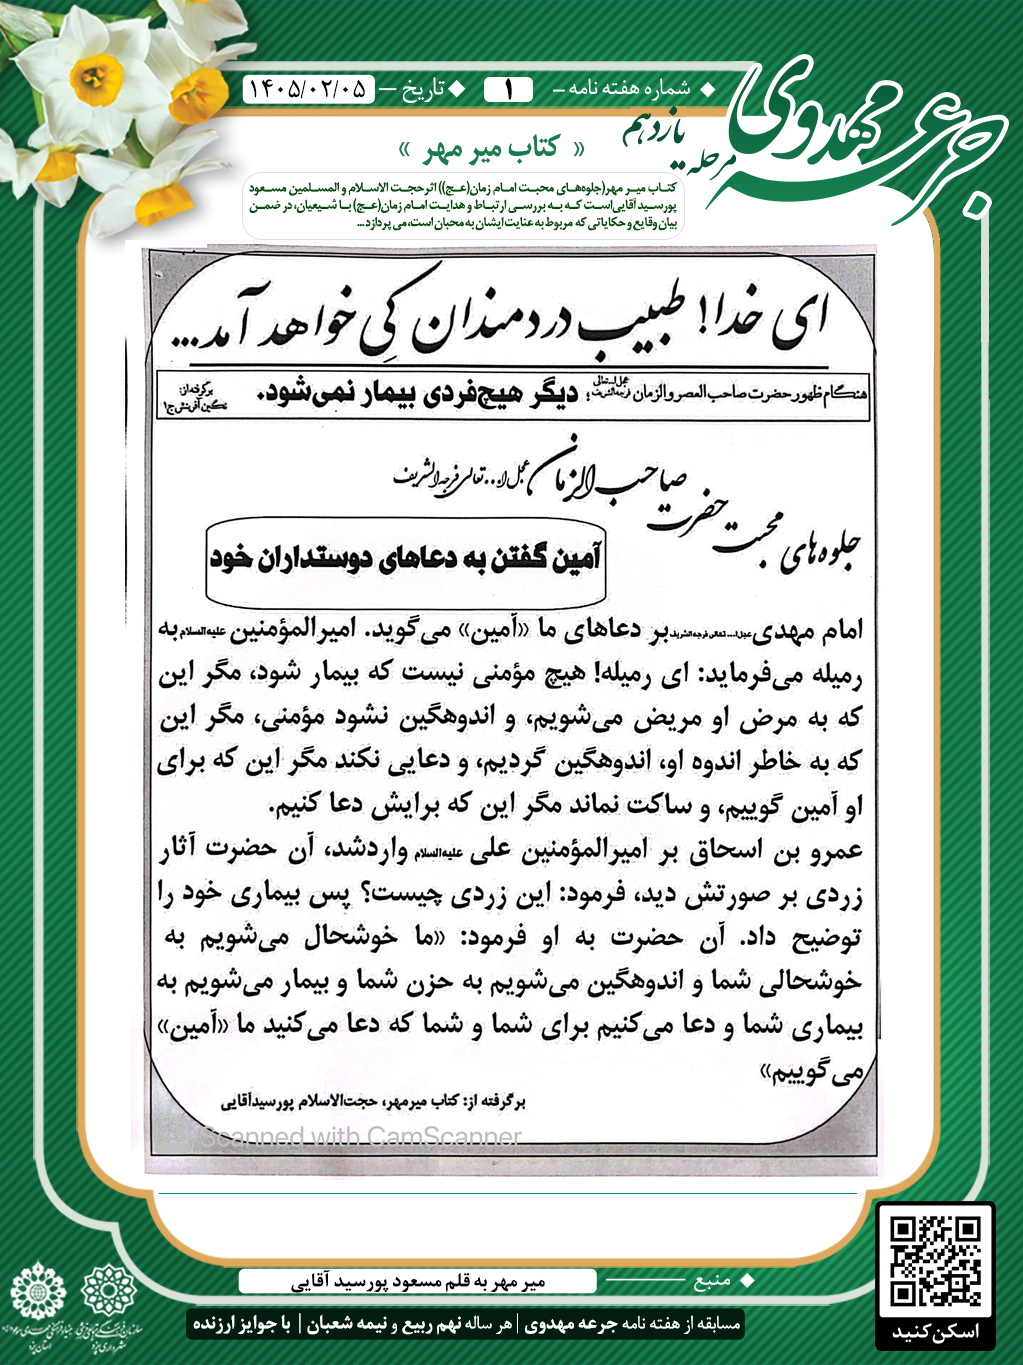 جرعه مهدوی
مرحله یازدهم
شماره هفته نامه - ۱ تاریخ - ۱۴۰۵/۰۲/۰۵
« کتاب میر مهر »
کتاب میر مهر(جلوه‌های محبت امام زمان(عج)) اثر حجت الاسلام و المسلمین مسعود
پورسید آقایی است که به بررسی ارتباط و هدایت امام زمان(عج) با شیعیان، در ضمن
بیان وقایع و حکایاتی که مربوط به عنایت ایشان به محبان است، می پردازد...
ای خدا! طبیب دردمندان کِی خواهد آمد...
هنگام ظهور حضرت صاحب العصر و الزمان عجل الله تعالی فرجه الشریف؛ دیگر هیچ فردی بیمار نمی‌شود.
برگرفته از:
نگین آفرینش ج۱
جلوه‌های محبت حضرت صاحب الزمان عجل الله تعالی فرجه الشریف
آمین گفتن به دعاهای دوستداران خود
امام مهدی عجل ا... تعالی فرجه الشریف بر دعاهای ما «آمین» می‌گوید. امیرالمؤمنین علیه‌السلام به
رمیله می‌فرماید: ای رمیله! هیچ مؤمنی نیست که بیمار شود، مگر این
که به مرض او مریض می‌شویم، و اندوهگین نشود مؤمنی، مگر این
که به خاطر اندوه او، اندوهگین گردیم، و دعایی نکند مگر این که برای
او آمین گوییم، و ساکت نماند مگر این که برایش دعا کنیم.
عمرو بن اسحاق بر امیرالمؤمنین علی علیه‌السلام واردشد، آن حضرت آثار
زردی بر صورتش دید، فرمود: این زردی چیست؟ پس بیماری خود را
توضیح داد. آن حضرت به او فرمود: «ما خوشحال می‌شویم به
خوشحالی شما و اندوهگین می‌شویم به حزن شما و بیمار می‌شویم به
بیماری شما و دعا می‌کنیم برای شما و شما که دعا می‌کنید ما «آمین»
می‌گوییم»
برگرفته از: کتاب میرمهر، حجت‌الاسلام پورسیدآقایی
Scanned with CamScanner
منبع میر مهر به قلم مسعود پورسید آقایی
مسابقه از هفته نامه جرعه مهدوی | هر ساله نهم ربیع و نیمه شعبان | با جوایز ارزنده
اسکن کنید